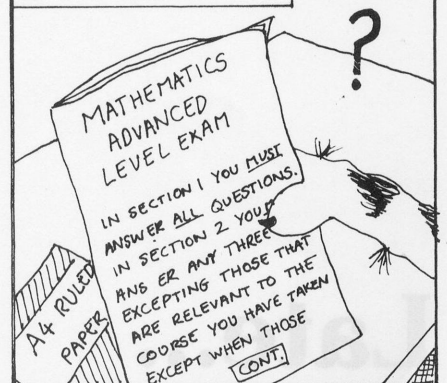 ?
MATHEMATICS
ADVANCED
LEVEL EXAM
IN SECTION 1 YOU MUST
ANSWER ALL QUESTIONS.
IN SECTION 2 YOU
ANS ER ANY THREE
EXCEPTING THOSE THAT
ARE RELEVANT TO THE
COURSE YOU HAVE TAKEN
EXCEPT WHEN THOSE
CONT.
A4 RULED
PAPER